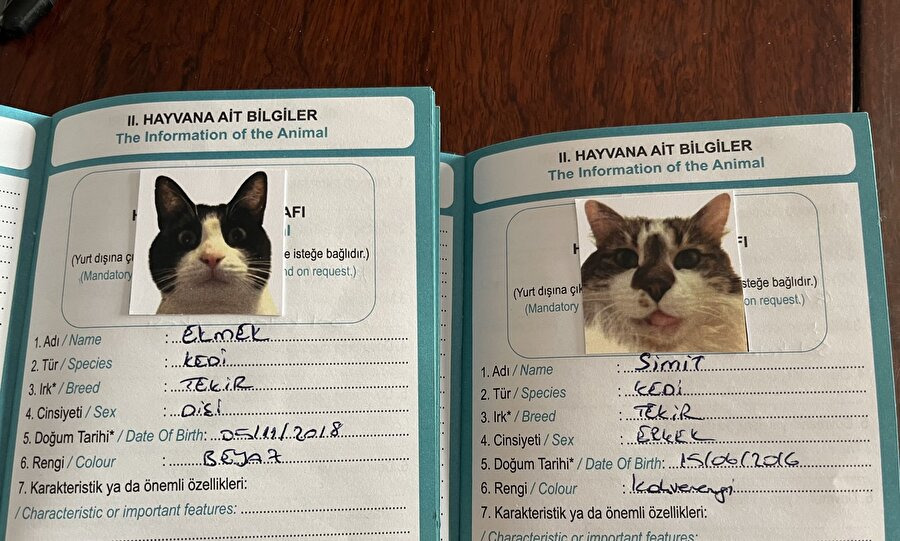 II. HAYVANA AİT BİLGİLER
The Information of the Animal
AFI
(Yurt dışına e isteğe bağlıdır.)
(Mandatory nd on request.)
1. Adı / Name : EKMEK
2. Tür / Species : KEDİ
3. Irk* / Breed : TEKİR
4. Cinsiyeti / Sex : DİŞİ
5. Doğum Tarihi* / Date Of Birth: 05/11/2018
6. Rengi / Colour : BEYAZ
7. Karakteristik ya da önemli özellikleri:
/ Characteristic or important features:
II. HAYVANA AİT BİLGİLER
The Information of the Animal
FI
(Yurt dışına isteğe bağlıdır.)
(Mandatory on request.)
1. Adı / Name : SİMİT
2. Tür / Species : KEDİ
3. Irk* / Breed : TEKİR
4. Cinsiyeti / Sex : ERKEK
5. Doğum Tarihi* / Date Of Birth: 15/06/2016
6. Rengi / Colour : Kahverengi
7. Karakteristik ya da önemli özellikleri:
/ Characteristic or important features: